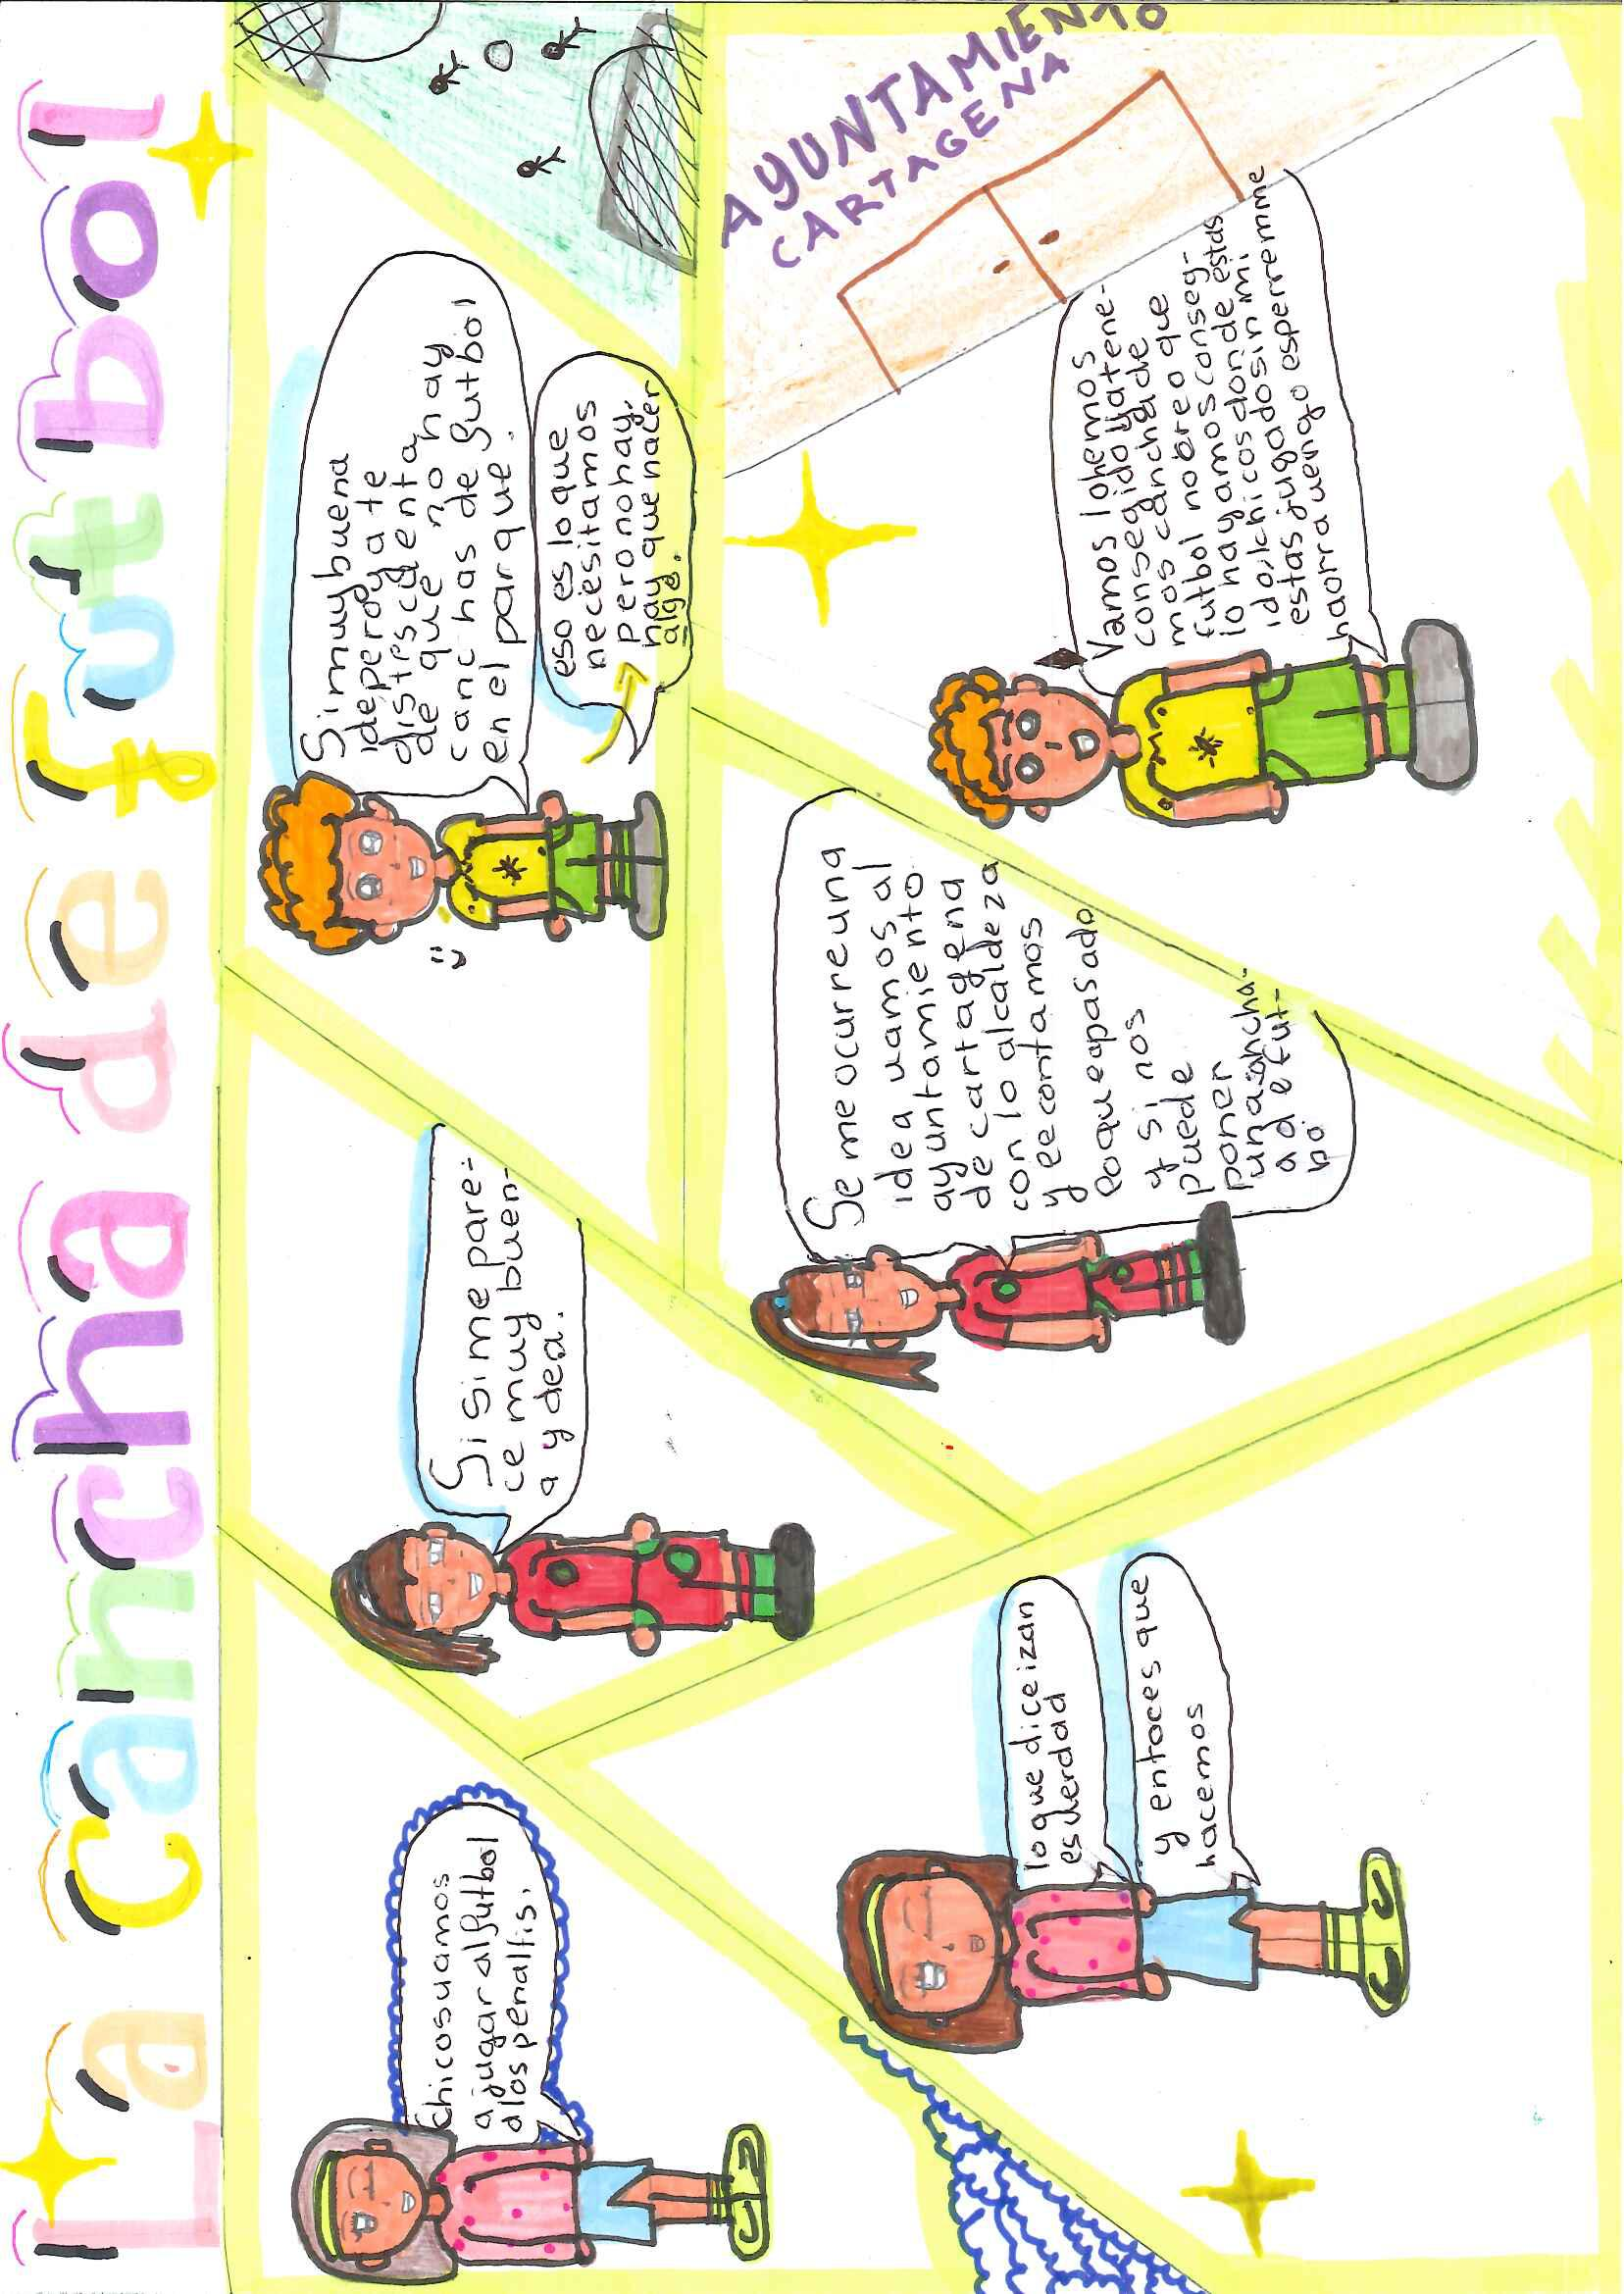 La cancha de futbol
chicosvamos
a jugar al futbol
a los penaltis.
Si sime pare-
ce muy buen-
a ydea.
Simuybuena
ideperoya te
distescuenta
de que no hay
canchas de futbol
en el parque.
eso es lo que
necesitamos
pero no hay,
hay que hacer
algo.
lo que dice izan
es verdad
y entoces que
hacemos
Se me ocurre una
idea vamos al
ayuntamiento
de cartagena
con lo alcaldeza
y ee contamos
eoque apasado
y si nos
puede
poner
una cancha-
a de fut-
bo
AYUNTAMIENTO
CARTAGENA
Vamos lohemos
conseguido yatene-
mos cancha de
futbol no creo que
lo hayamos conseg-
ido/chicos donde estas
estas jugadosin mi
haorra vengo esperremme